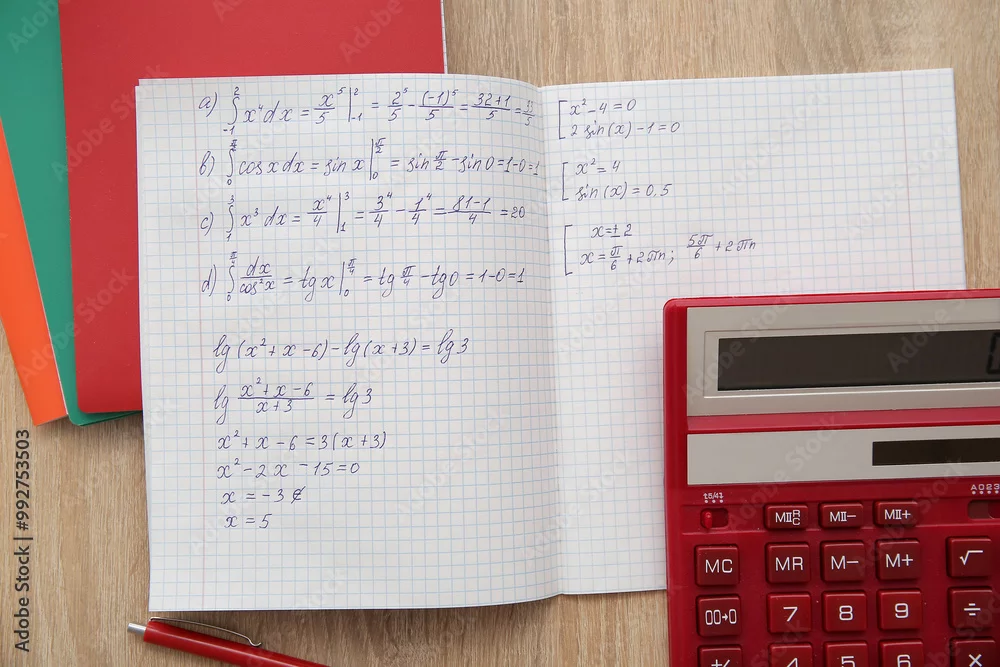 a) ∫₋₁² x⁴dx = x⁵/5 |₋₁² = 2⁵/5 - (-1)⁵/5 = 32+1/5 = 33/5
b) ∫₀^(π/2) cos x dx = sin x |₀^(π/2) = sin π/2 - sin 0 = 1-0 = 1
c) ∫₁³ x³ dx = x⁴/4 |₁³ = 3⁴/4 - 1⁴/4 = 81-1/4 = 20
d) ∫₀^(π/4) dx/cos²x = tg x |₀^(π/4) = tg π/4 - tg 0 = 1-0 = 1
lg (x²+x-6) - lg (x+3) = lg 3
lg x²+x-6/x+3 = lg 3
x²+x-6 = 3(x+3)
x²-2x-15 = 0
x = -3 ∉
x = 5
[ x²-4 = 0
2 sin(x) - 1 = 0
[ x² = 4
sin(x) = 0.5
[ x = ±2
x = π/6 + 2πn; 5π/6 + 2πn
MC MR M− M+ √
00→0 7 8 9 ÷
+/- 4 5 6 ×
Adobe Stock | #992753503